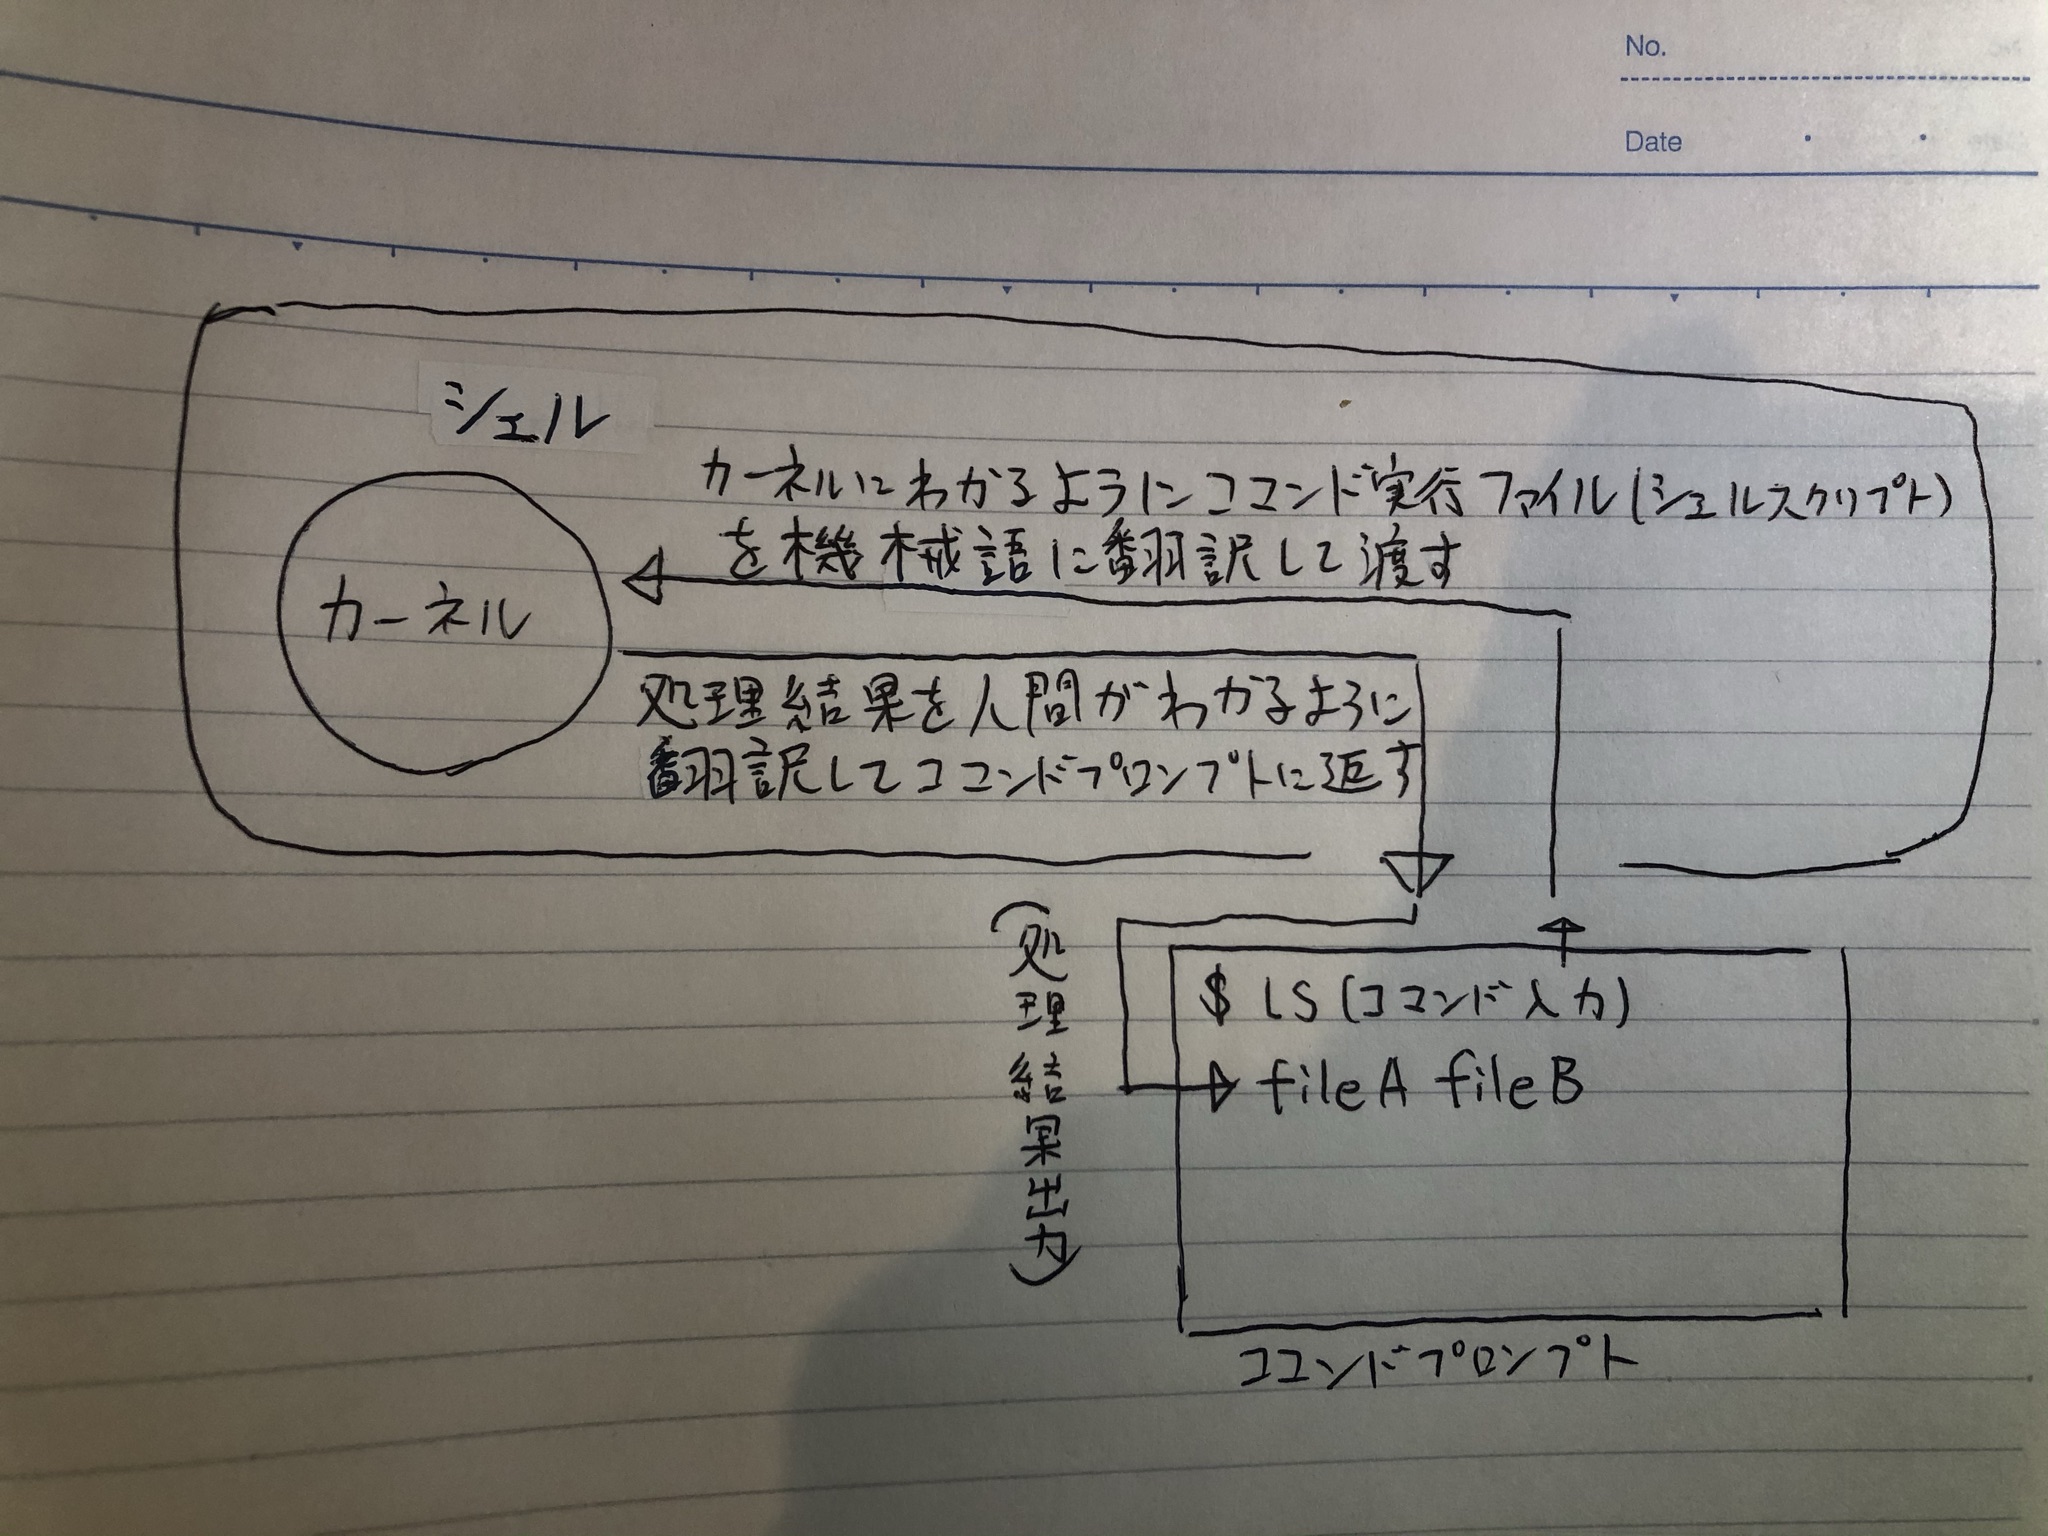 No.
Date
シェル
カーネルにわかるようにコマンド実行ファイル(シェルスクリプト)
を機械語に翻訳して渡す
カーネル
処理結果を人間がわかるように
翻訳してコマンドプロンプトに返す
(処理結果出力)
$ ls (コマンド入力)
fileA fileB
コマンドプロンプト